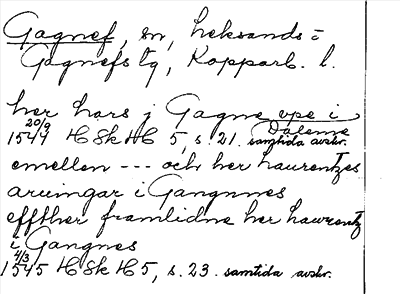 Gagnef, sn, Leksands-
Gagnefs tg, Kopparb. l.
her hans j Gagne vpe i
Dalerne
20/9
1544 HSkHC 5, s. 21. samtida avskr.
emellen --- och her haurentzes
aruingar i Gangnnes
effther framlidne her hawrentz
i Gangnes
4/3
1545 HSkH 5, s. 23. samtida avskr.